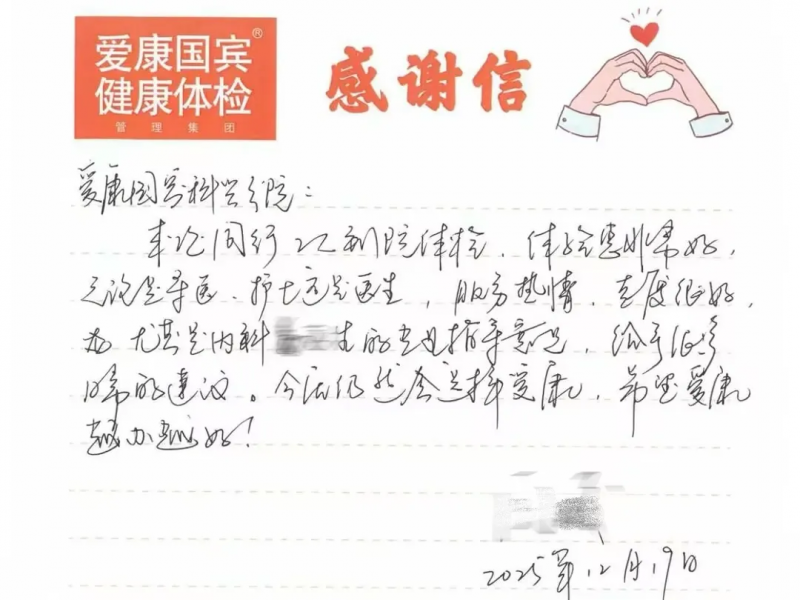 爱康国宾®
健康体检
管理集团
感谢信
爱康国宾科兴分院:
本次同行 来到院体检,体验感非常好,
无论是导医、护士还是医生,服务热情,态度很好,
尤其是内科 生的专业指导意见,给予很多
的建议。今后仍然会选择爱康,希望爱康
越办越好!
2025年12月19日